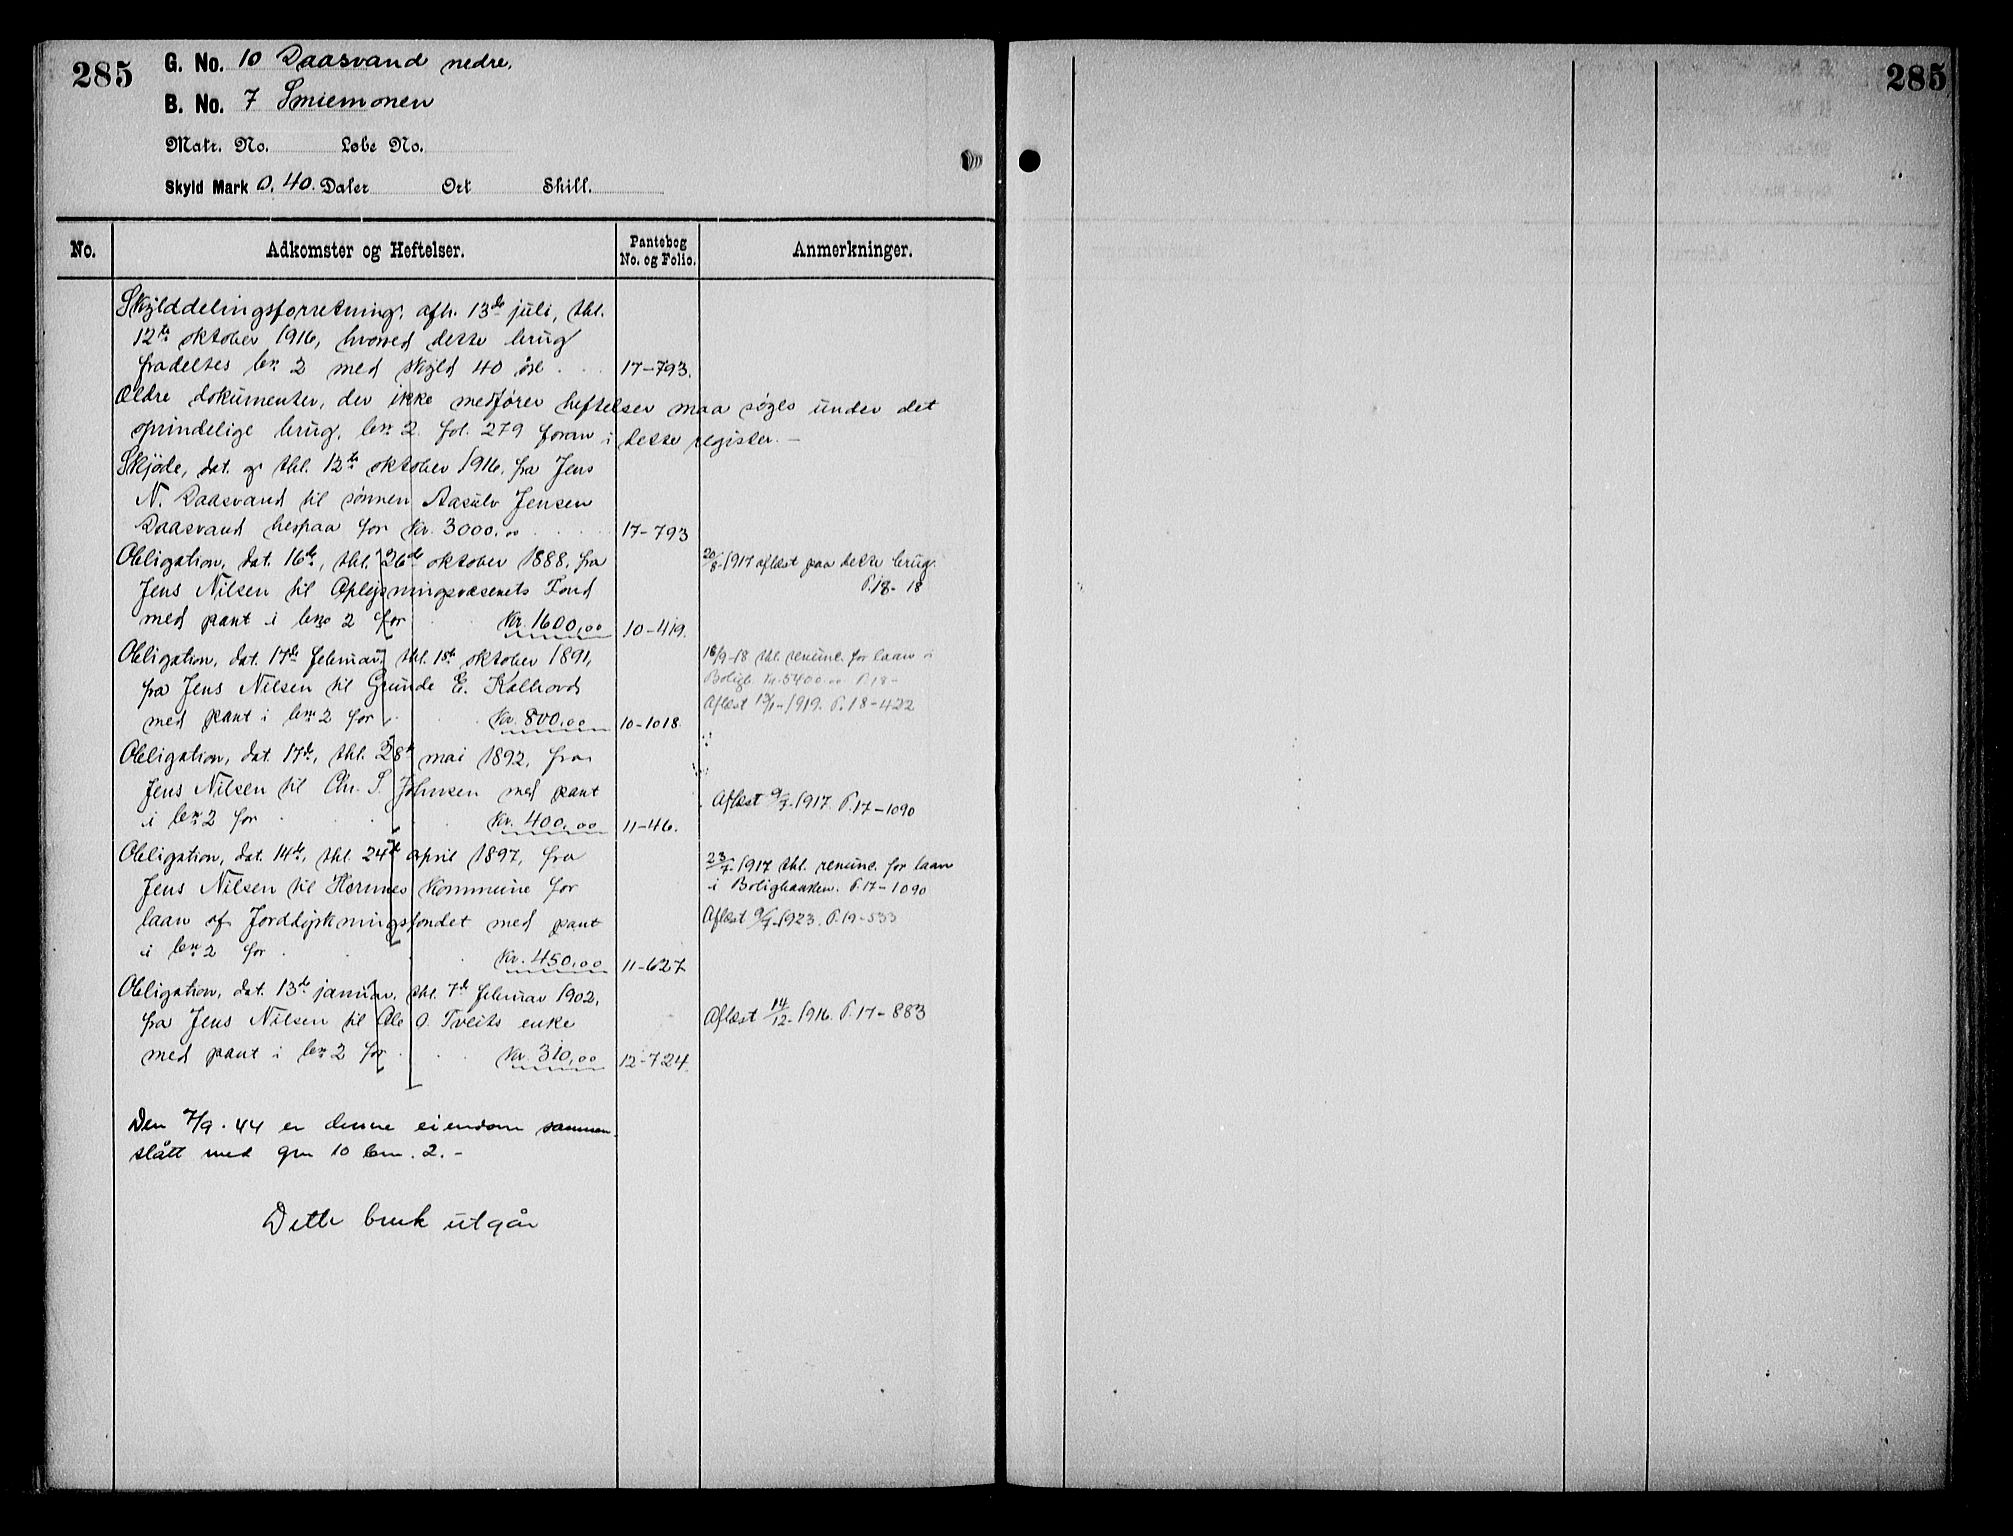 285
G. No. 10 Daasvand nedre.
B. No. 7 Smiemonen
Matr. No. Løbe No.
Skyld Mark 0,40. Daler Ort Skill.
No. Adkomster og Heftelser. Pantebog No. og Folio. Anmerkninger.
Skylddelingsforretning, afh. 13de juli, thl.
12te oktober 1916, hvorved dette brug
fradeltes bno 2 med skyld 40 øre . . 17-793.
Ældre dokumenter, der ikke medfører heftelser maa søges under det
oprindelige brug, bno 2 fol. 279 foran i dette register. -
Skjøde, dat. og thl. 12te oktober 1916, fra Jens
N. Daasvand til sønnen Aasulv Jensen
Daasvand herpaa for kr. 3000,00 . . . 17-793
Obligation, dat. 16de, thl. 26de oktober 1888, fra
Jens Nilsen til Oplysningsvæsenets Fond
med pant i bno 2 for . . kr. 1600,00 10-419.
20/8-1917 aflæst paa dette brug.
P. 18-18
Obligation, dat. 17de februar, thl. 1ste oktober 1891,
fra Jens Nilsen til Grunde E. Kalhovd
med pant i bno 2 for . . kr. 800,00 10-1018.
18/9-18 thl. renunc. for laan i
Boligb. kr. 5400.00 P. 18-
Aflæst 13/1-1919. P. 18-422
Obligation, dat. 17de, thl. 28de mai 1892, fra
Jens Nilsen til Chr. S. Johnsen med pant
i bno 2 for . . . kr. 400,00 11-46.
Aflæst 9/7-1917. P. 17-1090
Obligation, dat. 14de, thl. 24de april 1897, fra
Jens Nilsen til Hornnes kommune for
laan af Jorddyrkningsfondet med pant
i bno 2 for . . . kr. 450,00 11-627
23/7-1917 thl. renunc. for laan
i Boligbanken. P. 17-1090
Aflæst 9/7-1923. P. 19-533
Obligation, dat. 13de januar, thl. 7de februar 1902,
fra Jens Nilsen til Ole O. Tveits enke
med pant i bno 2 for . . kr. 310,00 12-724.
Aflæst 14/12-1916. P. 17-883
Den 7/9-44 er denne eiendom sammen-
slått med gnr 10 bnr. 2. -
Dette bruk utgår
285